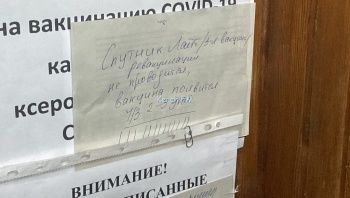 на вакцинацию COVID-19
ка
ксеро
С
Спутник Лайт/3-я вакцина/
ревакцинация
не проводится,
вакцина появится
ч/з 2-3 дня
ВНИМАНИЕ!
ПИСАННЫЕ